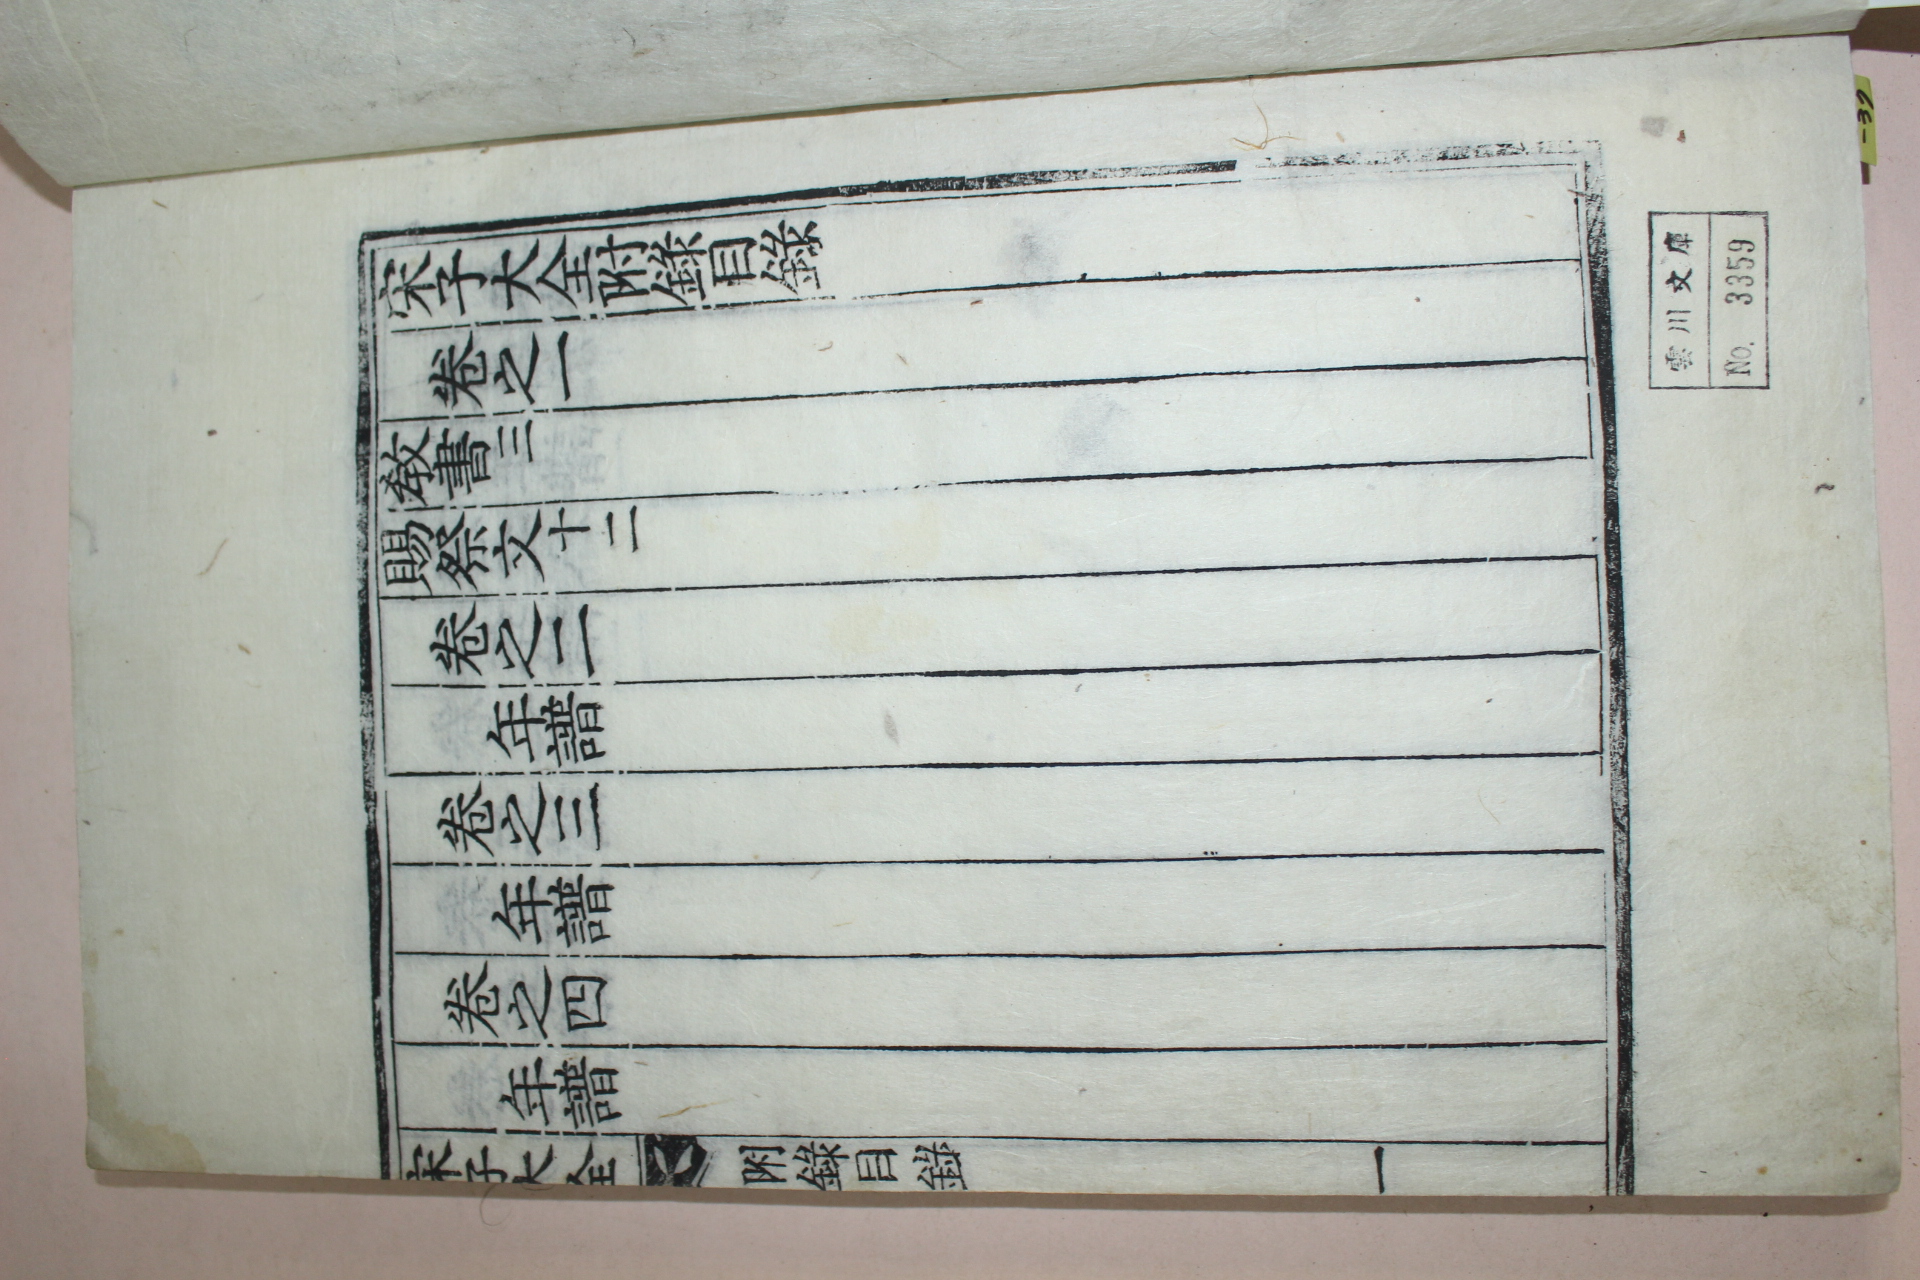 宋子大全附錄目錄
卷之一
敎書三
賜祭文十二
卷之二
年譜
卷之三
年譜
卷之四
年譜
宋子大全 附錄目錄 一
雲川文庫
No. 3359
-39